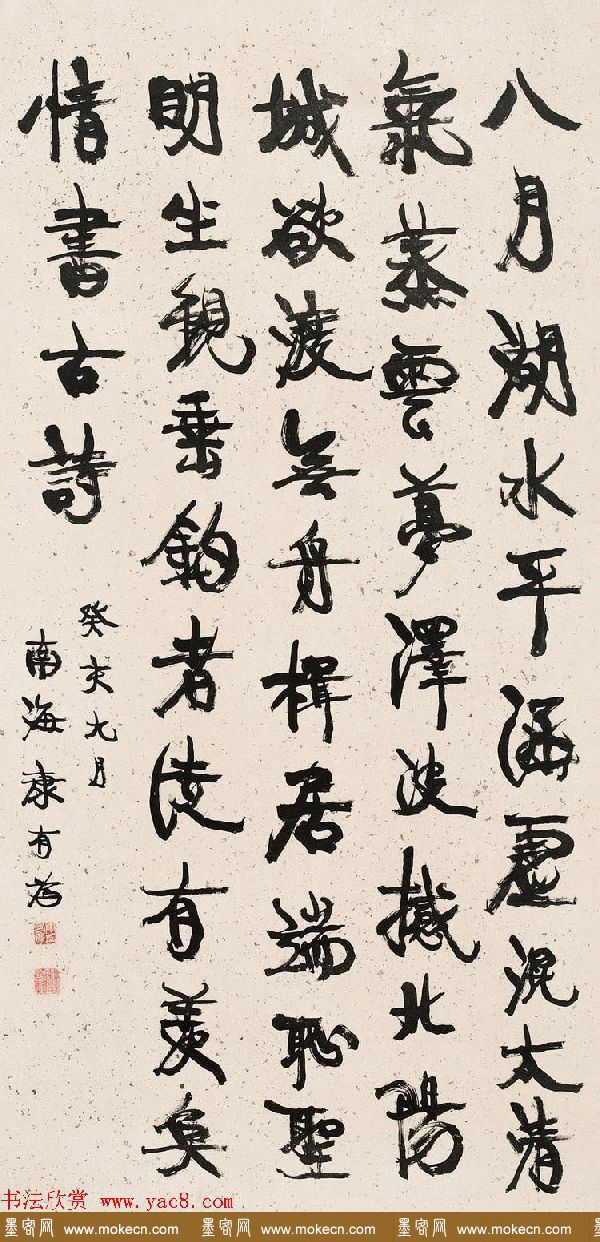 八月湖水平涵虛混太清
氣蒸雲夢澤波撼北陽
城欲渡無舟楫居端恥聖
明坐觀垂釣者徒有羨魚
情書古詩
癸亥九月
南海康有為
书法欣赏 www.yac8.com
墨客网 www.mokecn.com 墨客网 www.mokecn.com 墨客网 www.mokecn.com